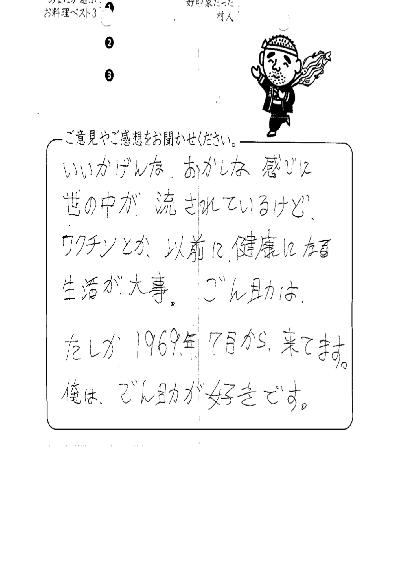 お料理ベスト3
好印象だった
対人
❶
❷
❸
ご意見やご感想をお聞かせください。
いいかげんな、おかしな 感じに
世の中が、流されているけど、
ワクチンとか、以前に、健康になる
生活が、大事。 ごん助は、
たしか 1969年 7月から、来てます。
俺は、ごん助が 好きです。